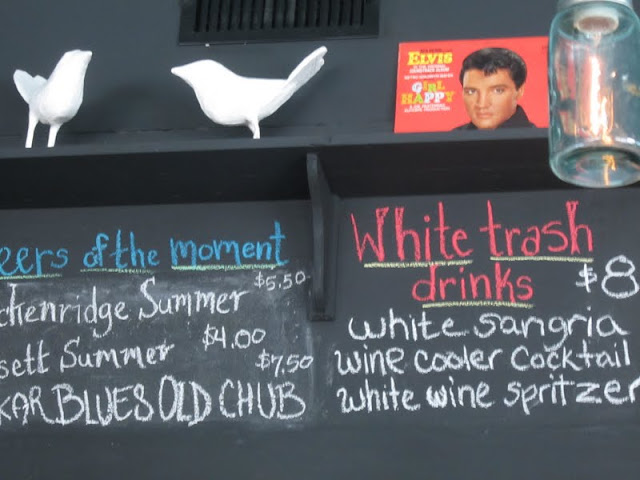 ELVIS
GIRL
HAPPY
eers of the moment
chenridge Summer $5.50
sett Summer $4.00
KAR BLUES OLD CHUB $7.50
White trash
drinks $8
white sangria
wine cooler cocktail
white wine spritzer